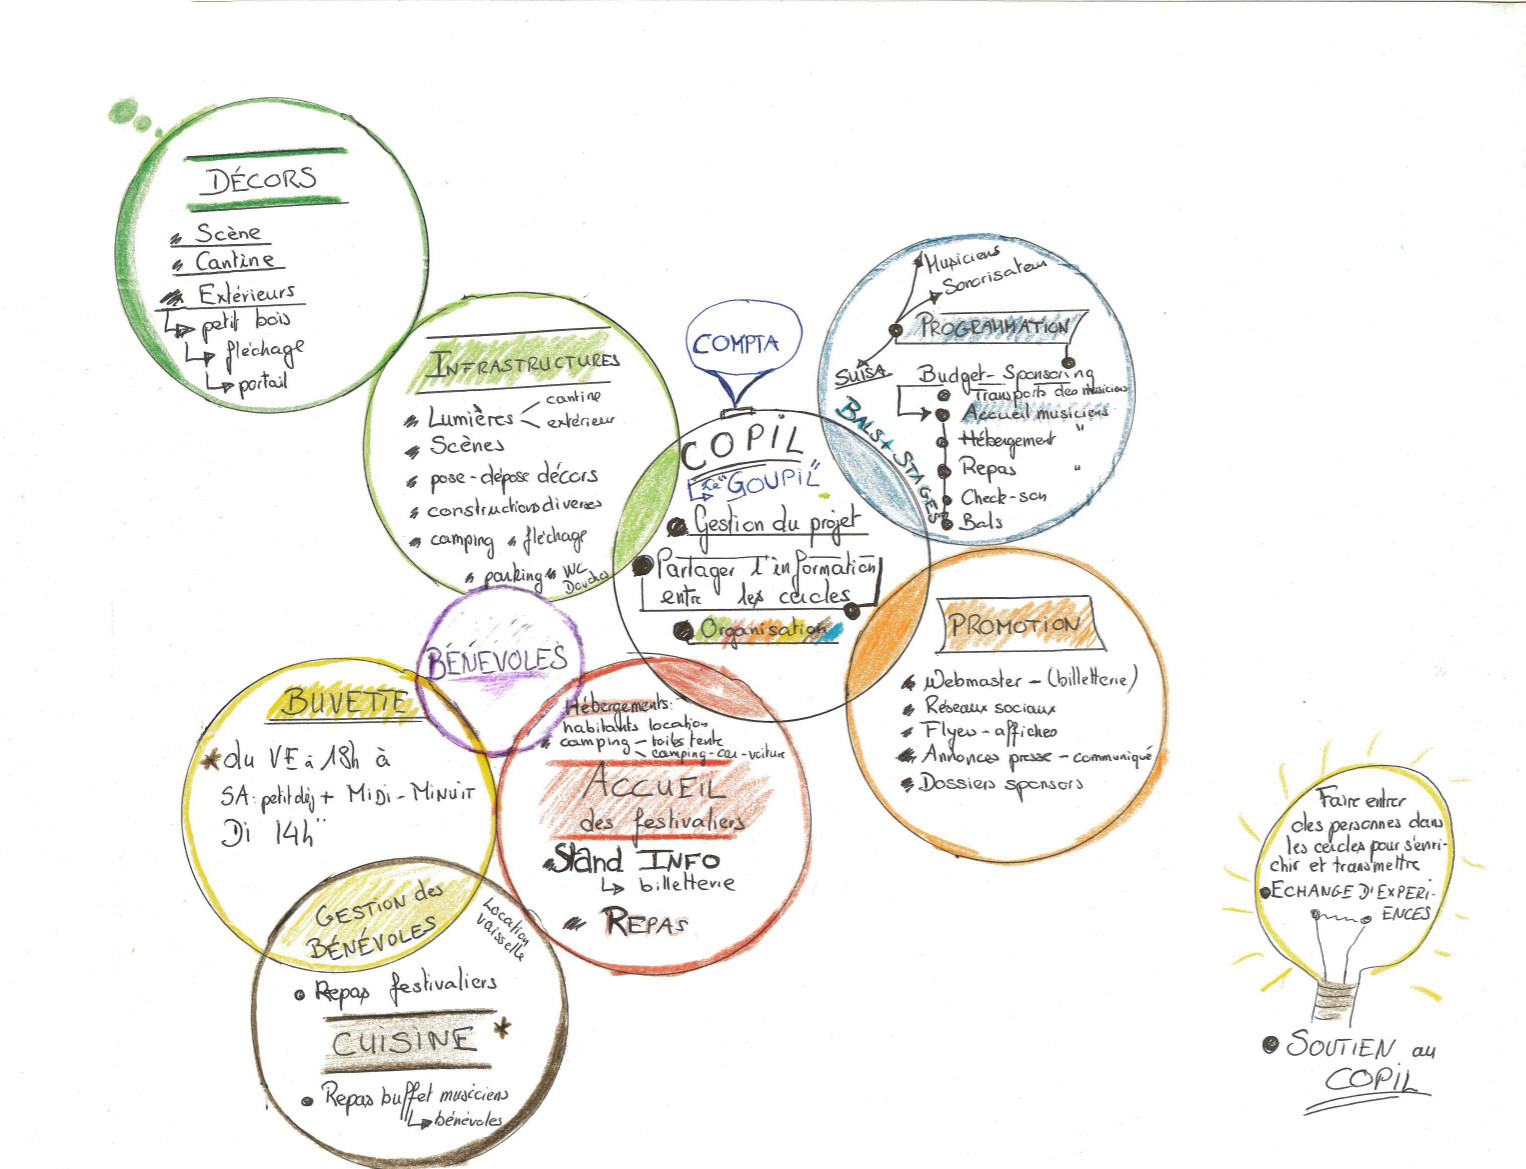 DÉCORS
Scène
Cantine
Extérieurs
petit bois
fléchage
portail
INFRASTRUCTURES
Lumières
cantine
extérieur
Scènes
pose-dépose décors
constructions diverses
camping fléchage
parking WC
Douches
COMPTA
COPIL
Le "GOUPIL"
Gestion du projet
Partager l'information
entre les cercles
Organisation
Musiciens
Sonorisateur
PROGRAMMATION
SUISA
BALS + STAGES
Budget-Sponsoring
Transports des musiciens
Accueil musiciens
Hébergement "
Repas "
Check-son
Bals
PROMOTION
Webmaster - (billetterie)
Réseaux sociaux
Flyers - affiches
Annonces presse - communiqué
Dossiers sponsors
BÉNÉVOLES
BUVETTE
*du VE à 18h à
SA: petit déj + MiDi - MiNUiT
Di 14h"
Hébergements:
habitants location
camping - toiles tente
camping-car-voiture
ACCUEIL
des festivaliers
Stand INFO
billetterie
REPAS
GESTION des
BÉNÉVOLES
Location
vaisselle
Repas festivaliers
CUISINE *
Repas buffet musiciens
bénévoles
Faire entrer
des personnes dans
les cercles pour s'enri-
chir et transmettre
ECHANGE D'EXPERI-
ENCES
SOUTIEN au
COPIL